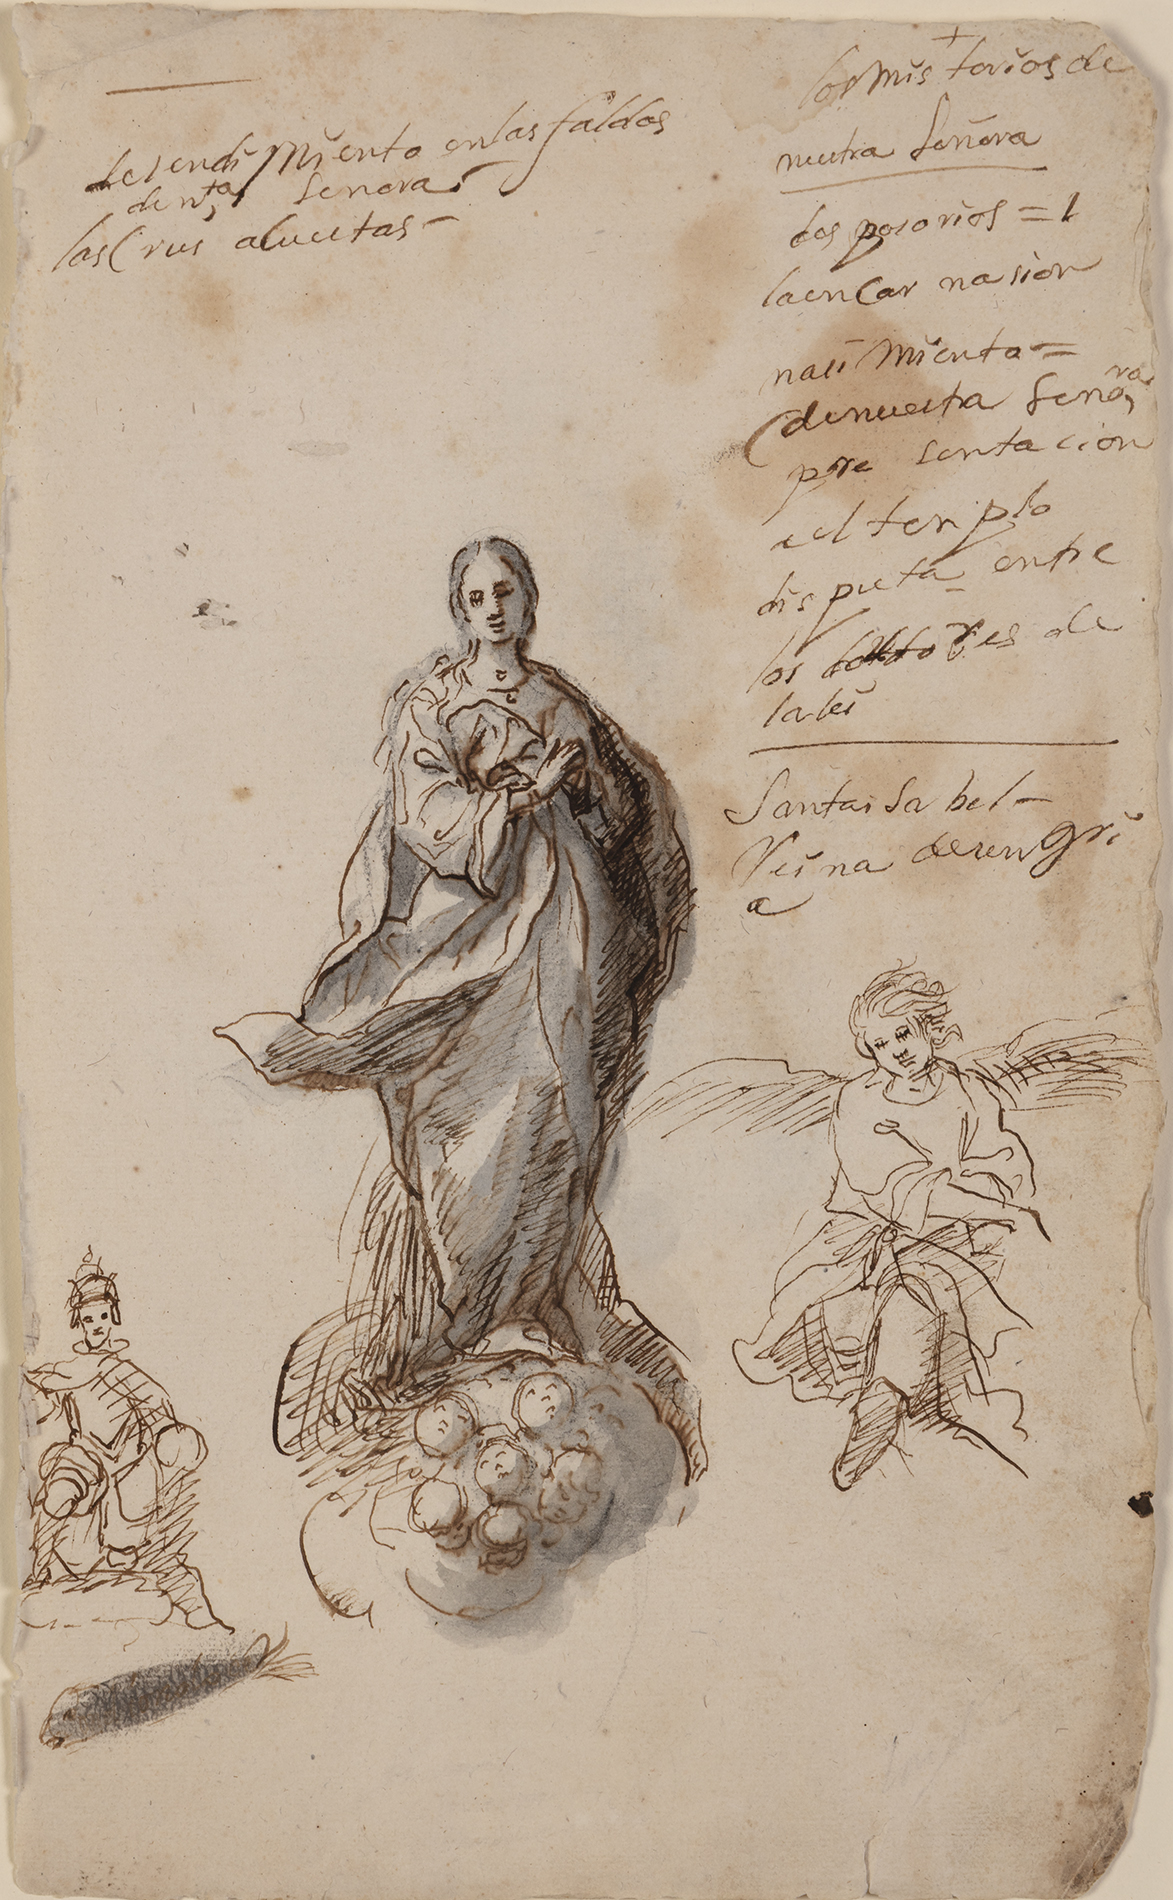 desendi Miento en las faldas
de nta Senora
las Crus a buertas
los Mis terios de
nuestra Señora
dos posorios = 1
la en Car nasion
nasi Miento =
de nuestra Señora
pre sentacion
a el templo
dis puta entre
los dottores de
la lei
Santa isa bel
Reina de un gri
a